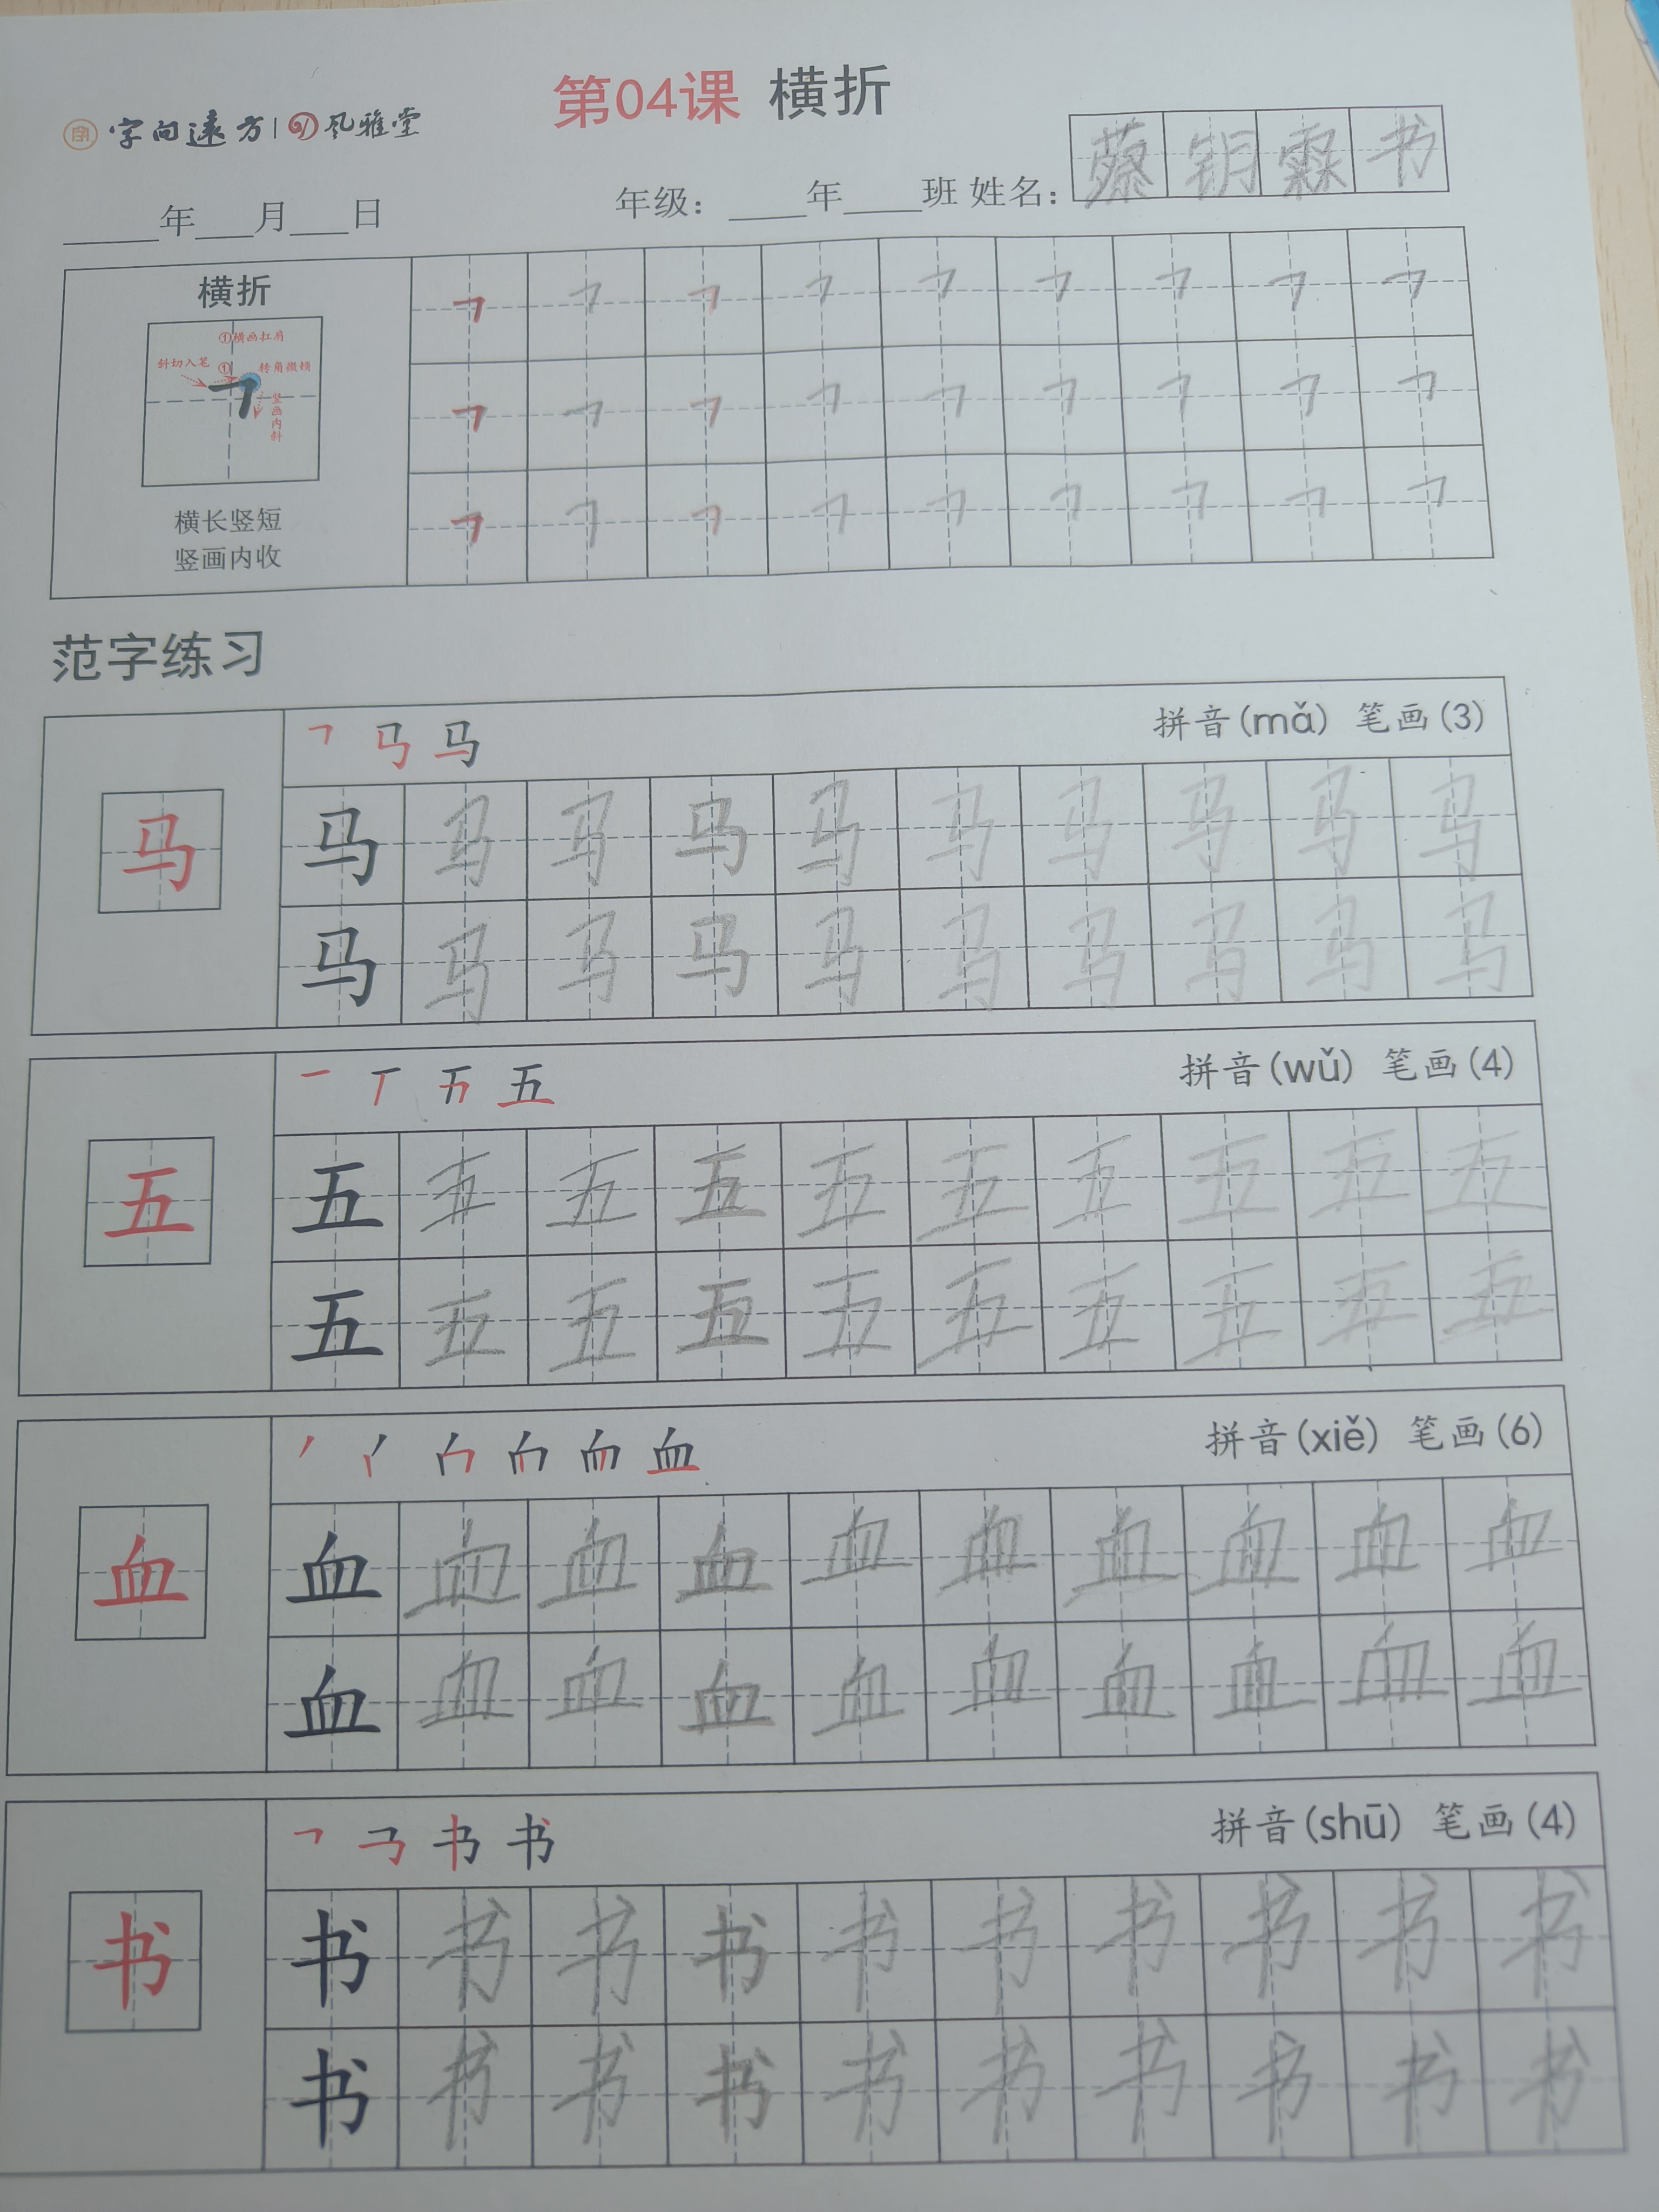 第04课 横折
字向远方 风雅堂
蔡钥霖书
年 月 日 年级: 年 班 姓名:
横折
①横画扛肩
斜切入笔 ① 转角微顿
竖画内斜
横长竖短
竖画内收
㇕ ㇕ ㇕ ㇕ ㇕ ㇕ ㇕ ㇕ ㇕
㇕ ㇕ ㇕ ㇕ ㇕ ㇕ ㇕ ㇕ ㇕
㇕ ㇕ ㇕ ㇕ ㇕ ㇕ ㇕ ㇕ ㇕
范字练习
马 拼音(mǎ) 笔画(3)
马
马 马 马 马 马 马 马 马 马 马
马 马 马 马 马 马 马 马 马 马
五 拼音(wǔ) 笔画(4)
五
五 五 五 五 五 五 五 五 五 五
五 五 五 五 五 五 五 五 五 五
血 拼音(xiě) 笔画(6)
血
血 血 血 血 血 血 血 血 血 血
血 血 血 血 血 血 血 血 血 血
书 拼音(shū) 笔画(4)
书
书 书 书 书 书 书 书 书 书 书
书 书 书 书 书 书 书 书 书 书